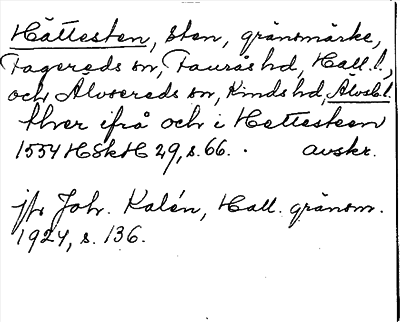 Hättesten, sten, gränsmärke,
Fagereds sn, Faurås hd, Hall. l.,
och Älvsereds sn, Kinds hd, Älvsb. l.
thver ifrå och i Hettesteen
1554 HSkH 29, s. 66. . avskr.
jfr Joh. Kalén, Hall. gränsm.
1924, s. 136.